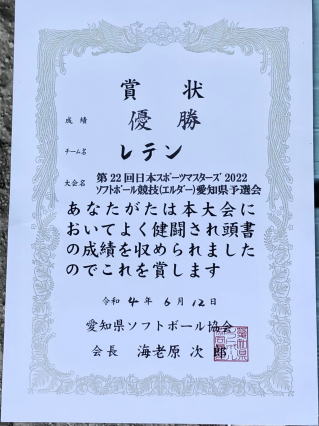 賞状
成績 優勝
チーム名 レテン
大会名 第22回日本スポーツマスターズ2022
ソフトボール競技(エルダー)愛知県予選会
あなたがたは本大会に
おいてよく健闘され頭書
の成績を収められました
のでこれを賞します
令和4年6月12日
愛知県ソフトボール協会
会長 海老原次郎